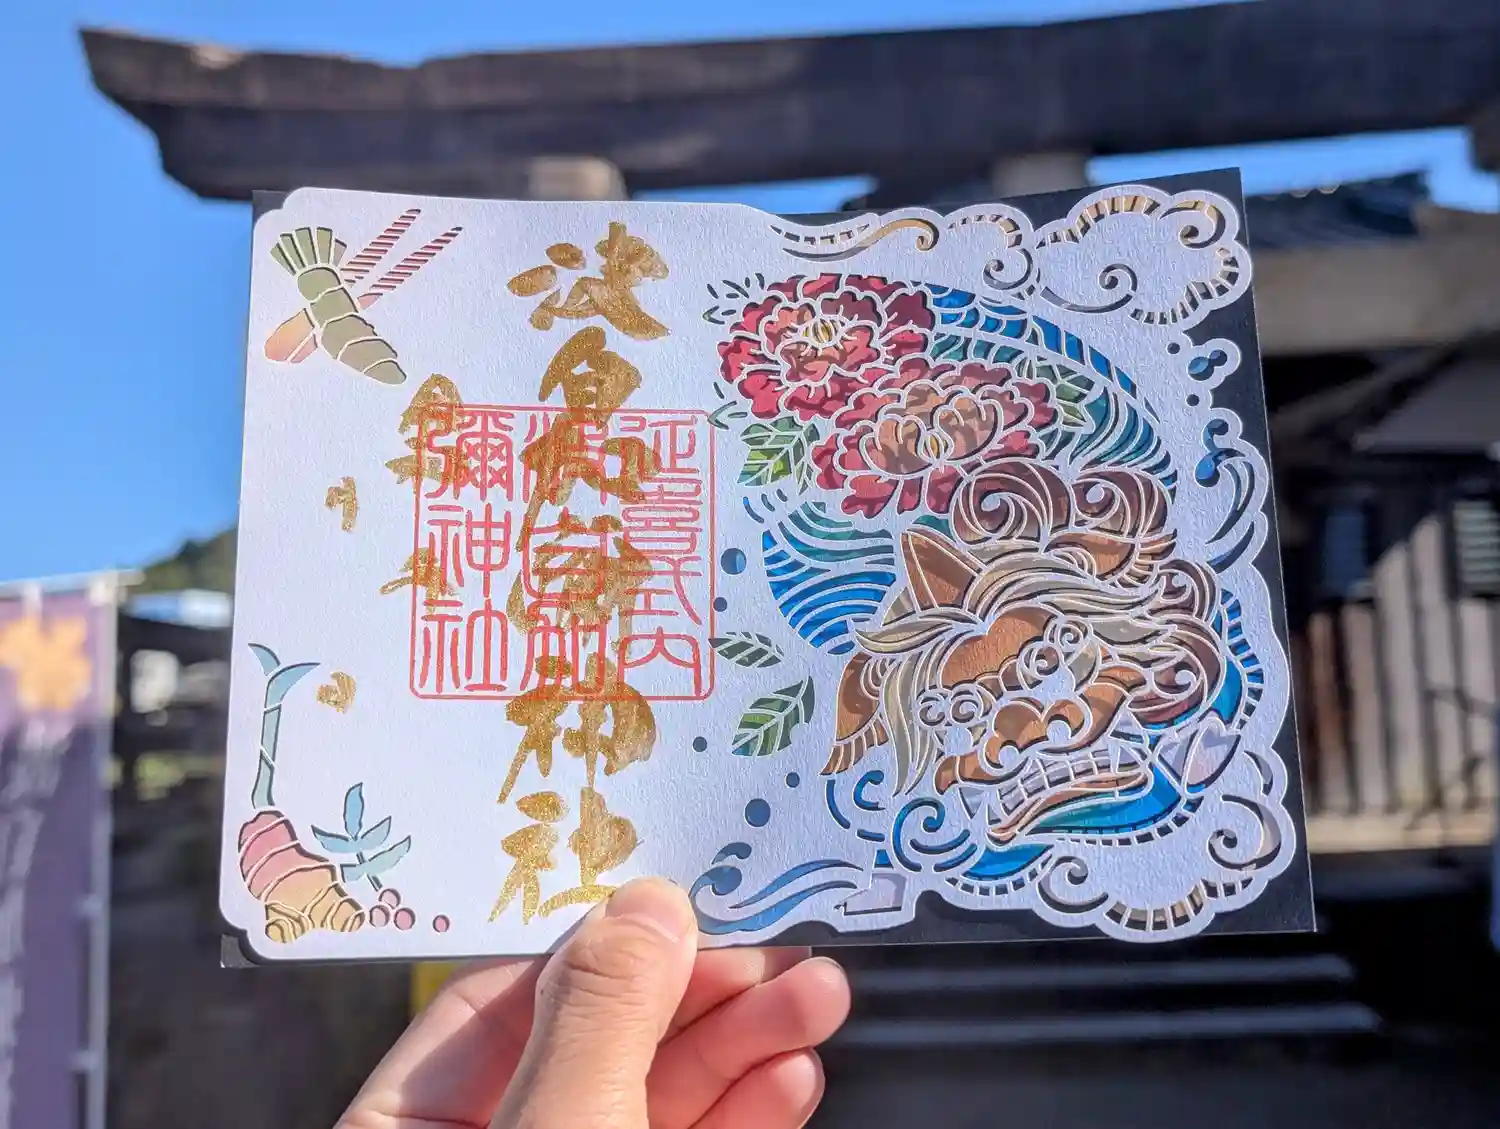 波自加彌神社
延喜式内
波自加
彌神社